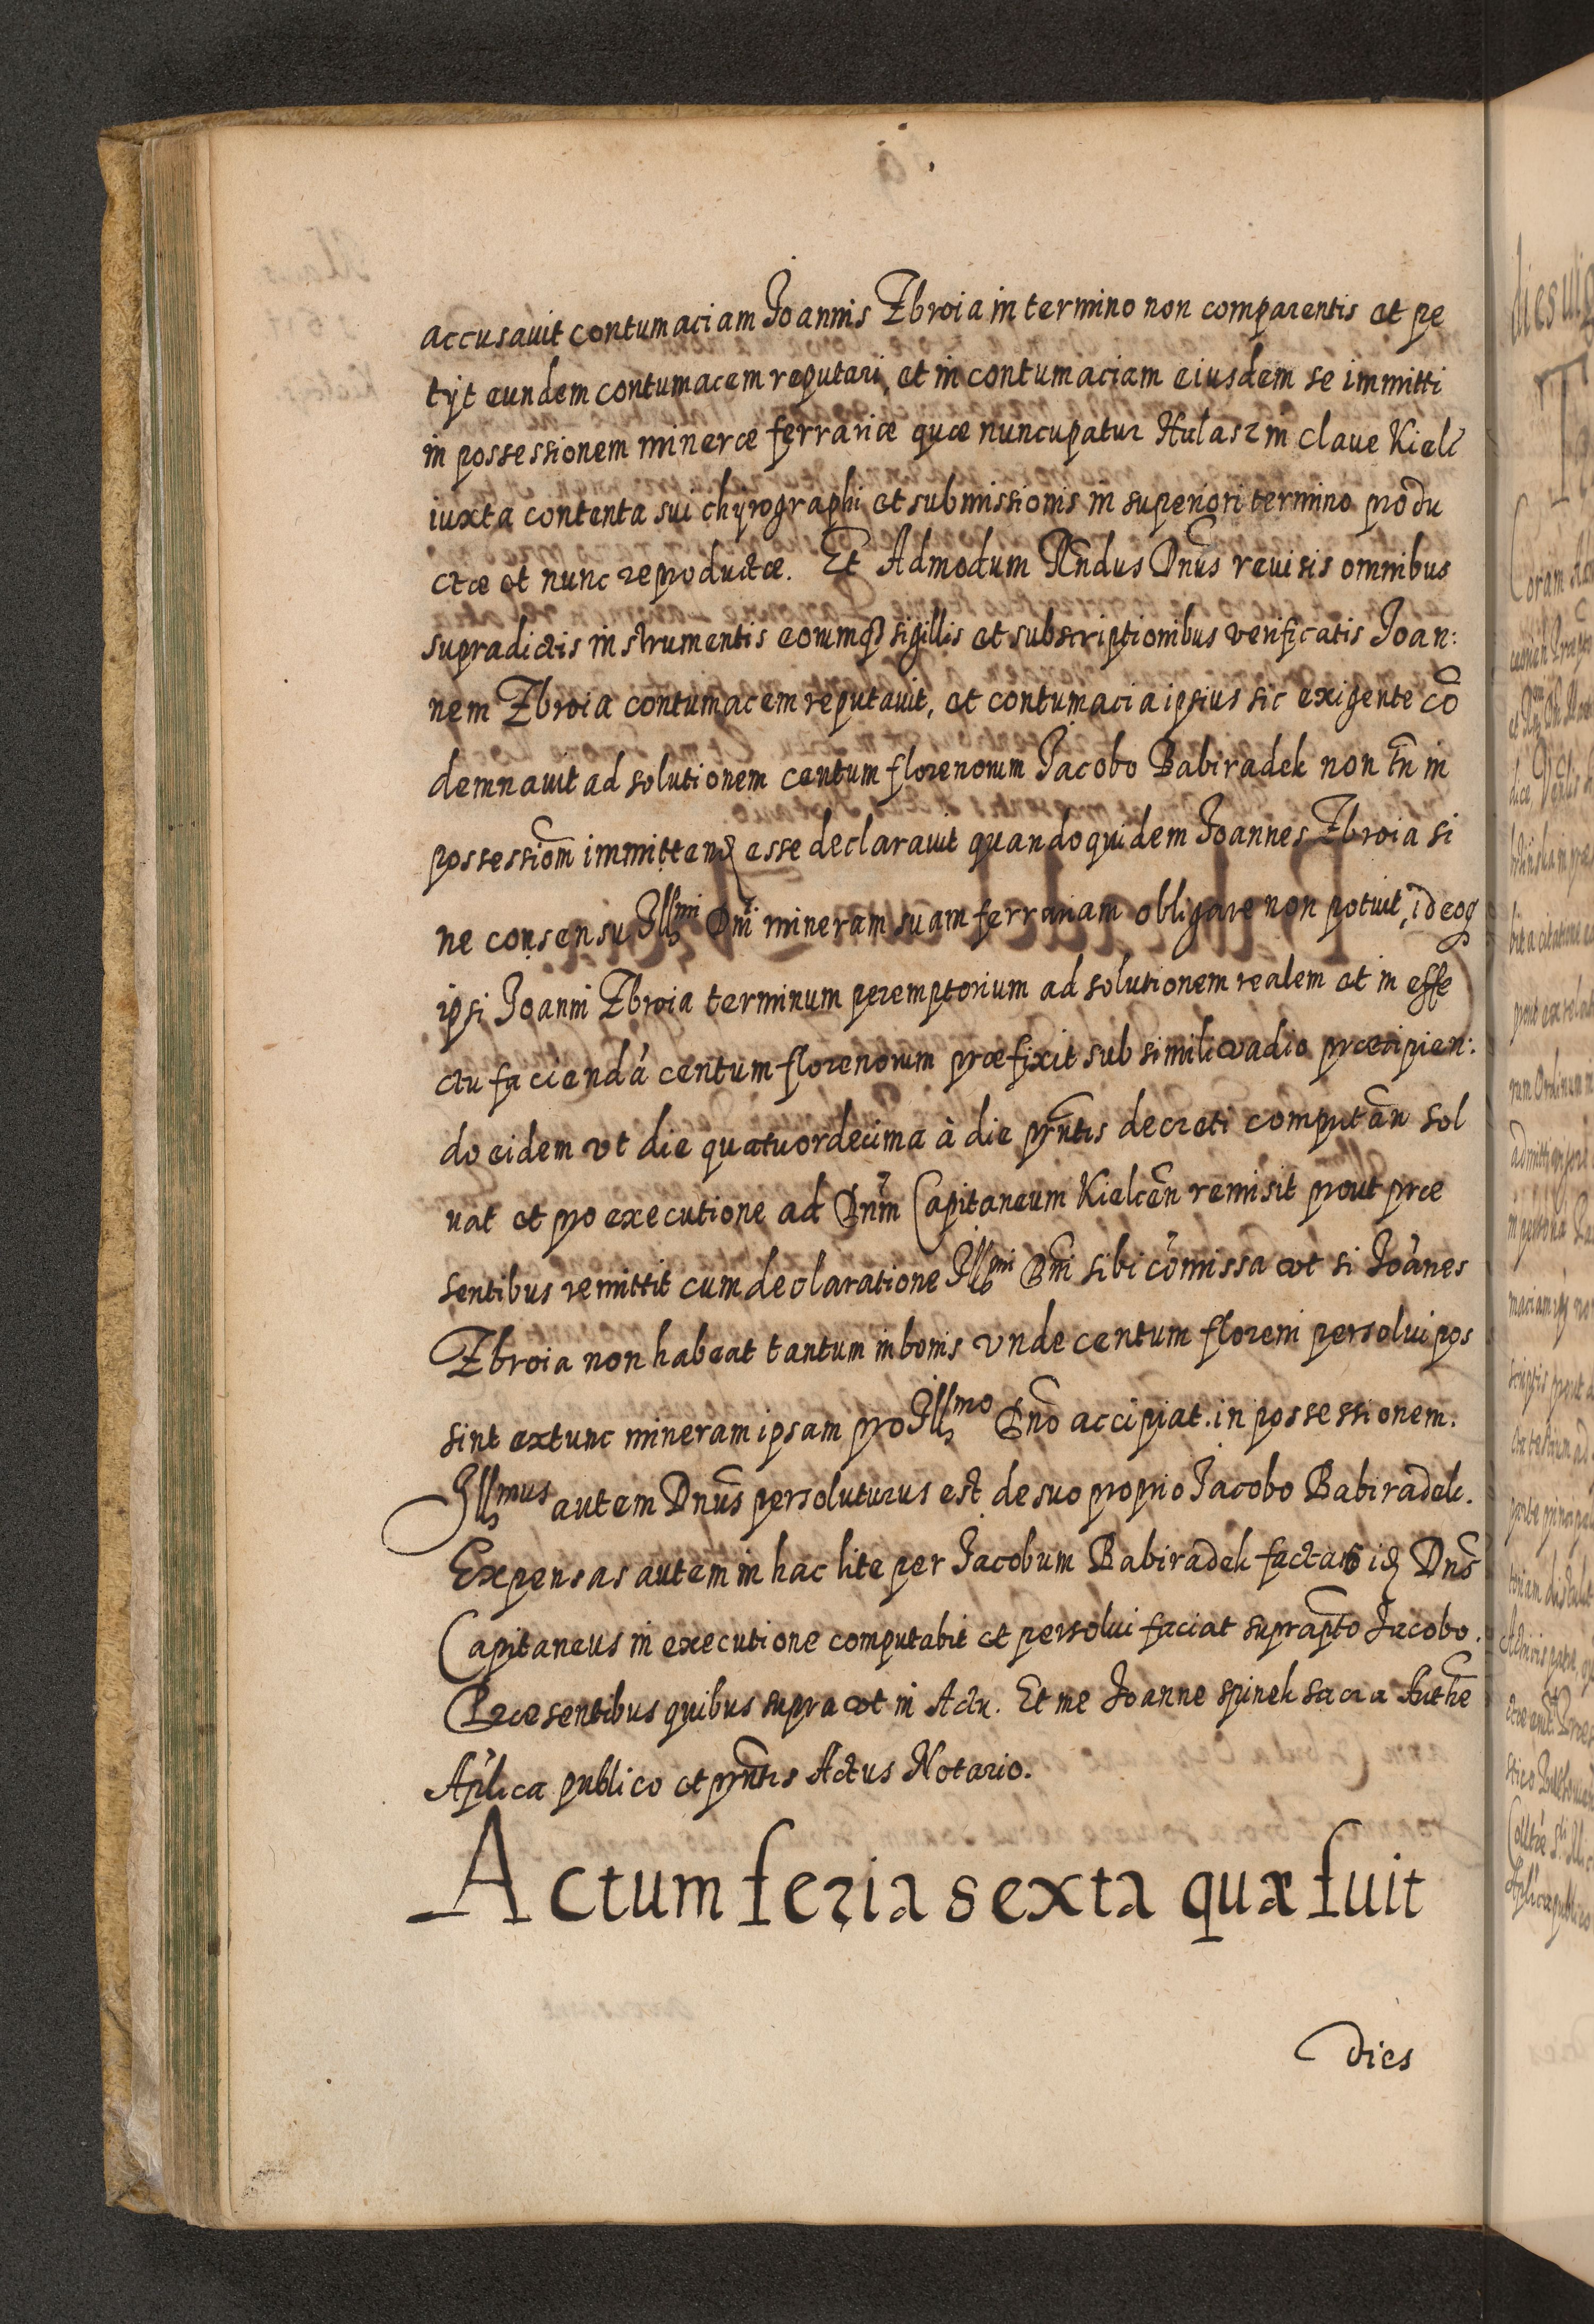 accusauit contumaciam Joannis Zbroia in termino non comparentis et pe
tijt eundem contumacem reputari, et in contumaciam eiusdem se immitti
in possessionem mineræ ferrariæ quæ nuncupatur Hulasz in claue Kielc̃
iuxta contenta sui chyrographi et submissionis in superiori termino produ
ctæ et nunc reproductæ. Et Admodum Rñdus Dñus reuisis omnibus
supradictis instrumentis eorumq3 sigillis et subscriptionibus verificatis Joan:
nem Zbroia contumacem reputauit, et contumacia ipsius sic exigente cõ
demnauit ad solutionem centum florenorum Jacobo Babiradek non tñ in
possessiom̃ immittend3 esse declarauit quandoquidem Joannes Zbroia si
ne consensu Ill^mi Dñi mineram suam ferrariam obligare non potuit, ideoq
ipsi Joanni Zbroia terminum peremptorium ad solutionem realem et in effe
ctu faciendã centum florenorum præfixit sub simili vadio præcipien:
do eidem vt die quatuordecima à die pñtis decreti computañ sol
uat et pro executione ad Dñm Capitaneum Kielceñ remisit prout præ
sentibus remittit cum declaratione Ill^mi Dñi sibi cõmissa vt si Joãnes
Zbroia non habeat tantum in bonis vnde centum floreni persolui pos
sint extunc mineram ipsam pro Ill^mo Dño accipiat in possessionem.
Ill^mus autem Dñus persoluturus est de suo proprio Jacobo Babiradek.
Expensas autem in hac lite per Jacobum Babiradek factas id3 Dñs
Capitaneus in executione computabit et persolui faciat suprap̃to Jacobo.
Præsentibus quibus supra vt in Actu. Et me Joanne Spinek sacra Authẽ
Aplica publico et pñtis Actus Notario.
Actum feria sexta quæ fuit
dies